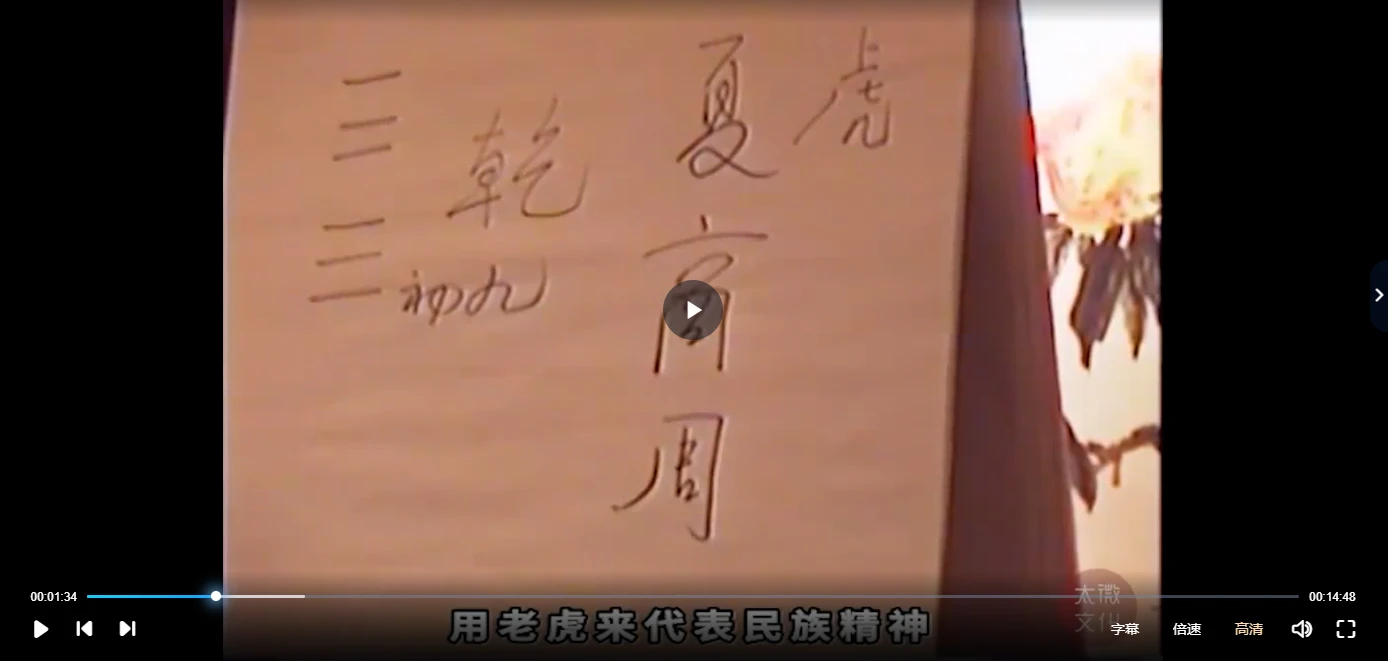 虎
夏
商
周
乾
初九
用老虎来代表民族精神
太微
文化
00:01:34
00:14:48
字幕
倍速
高清